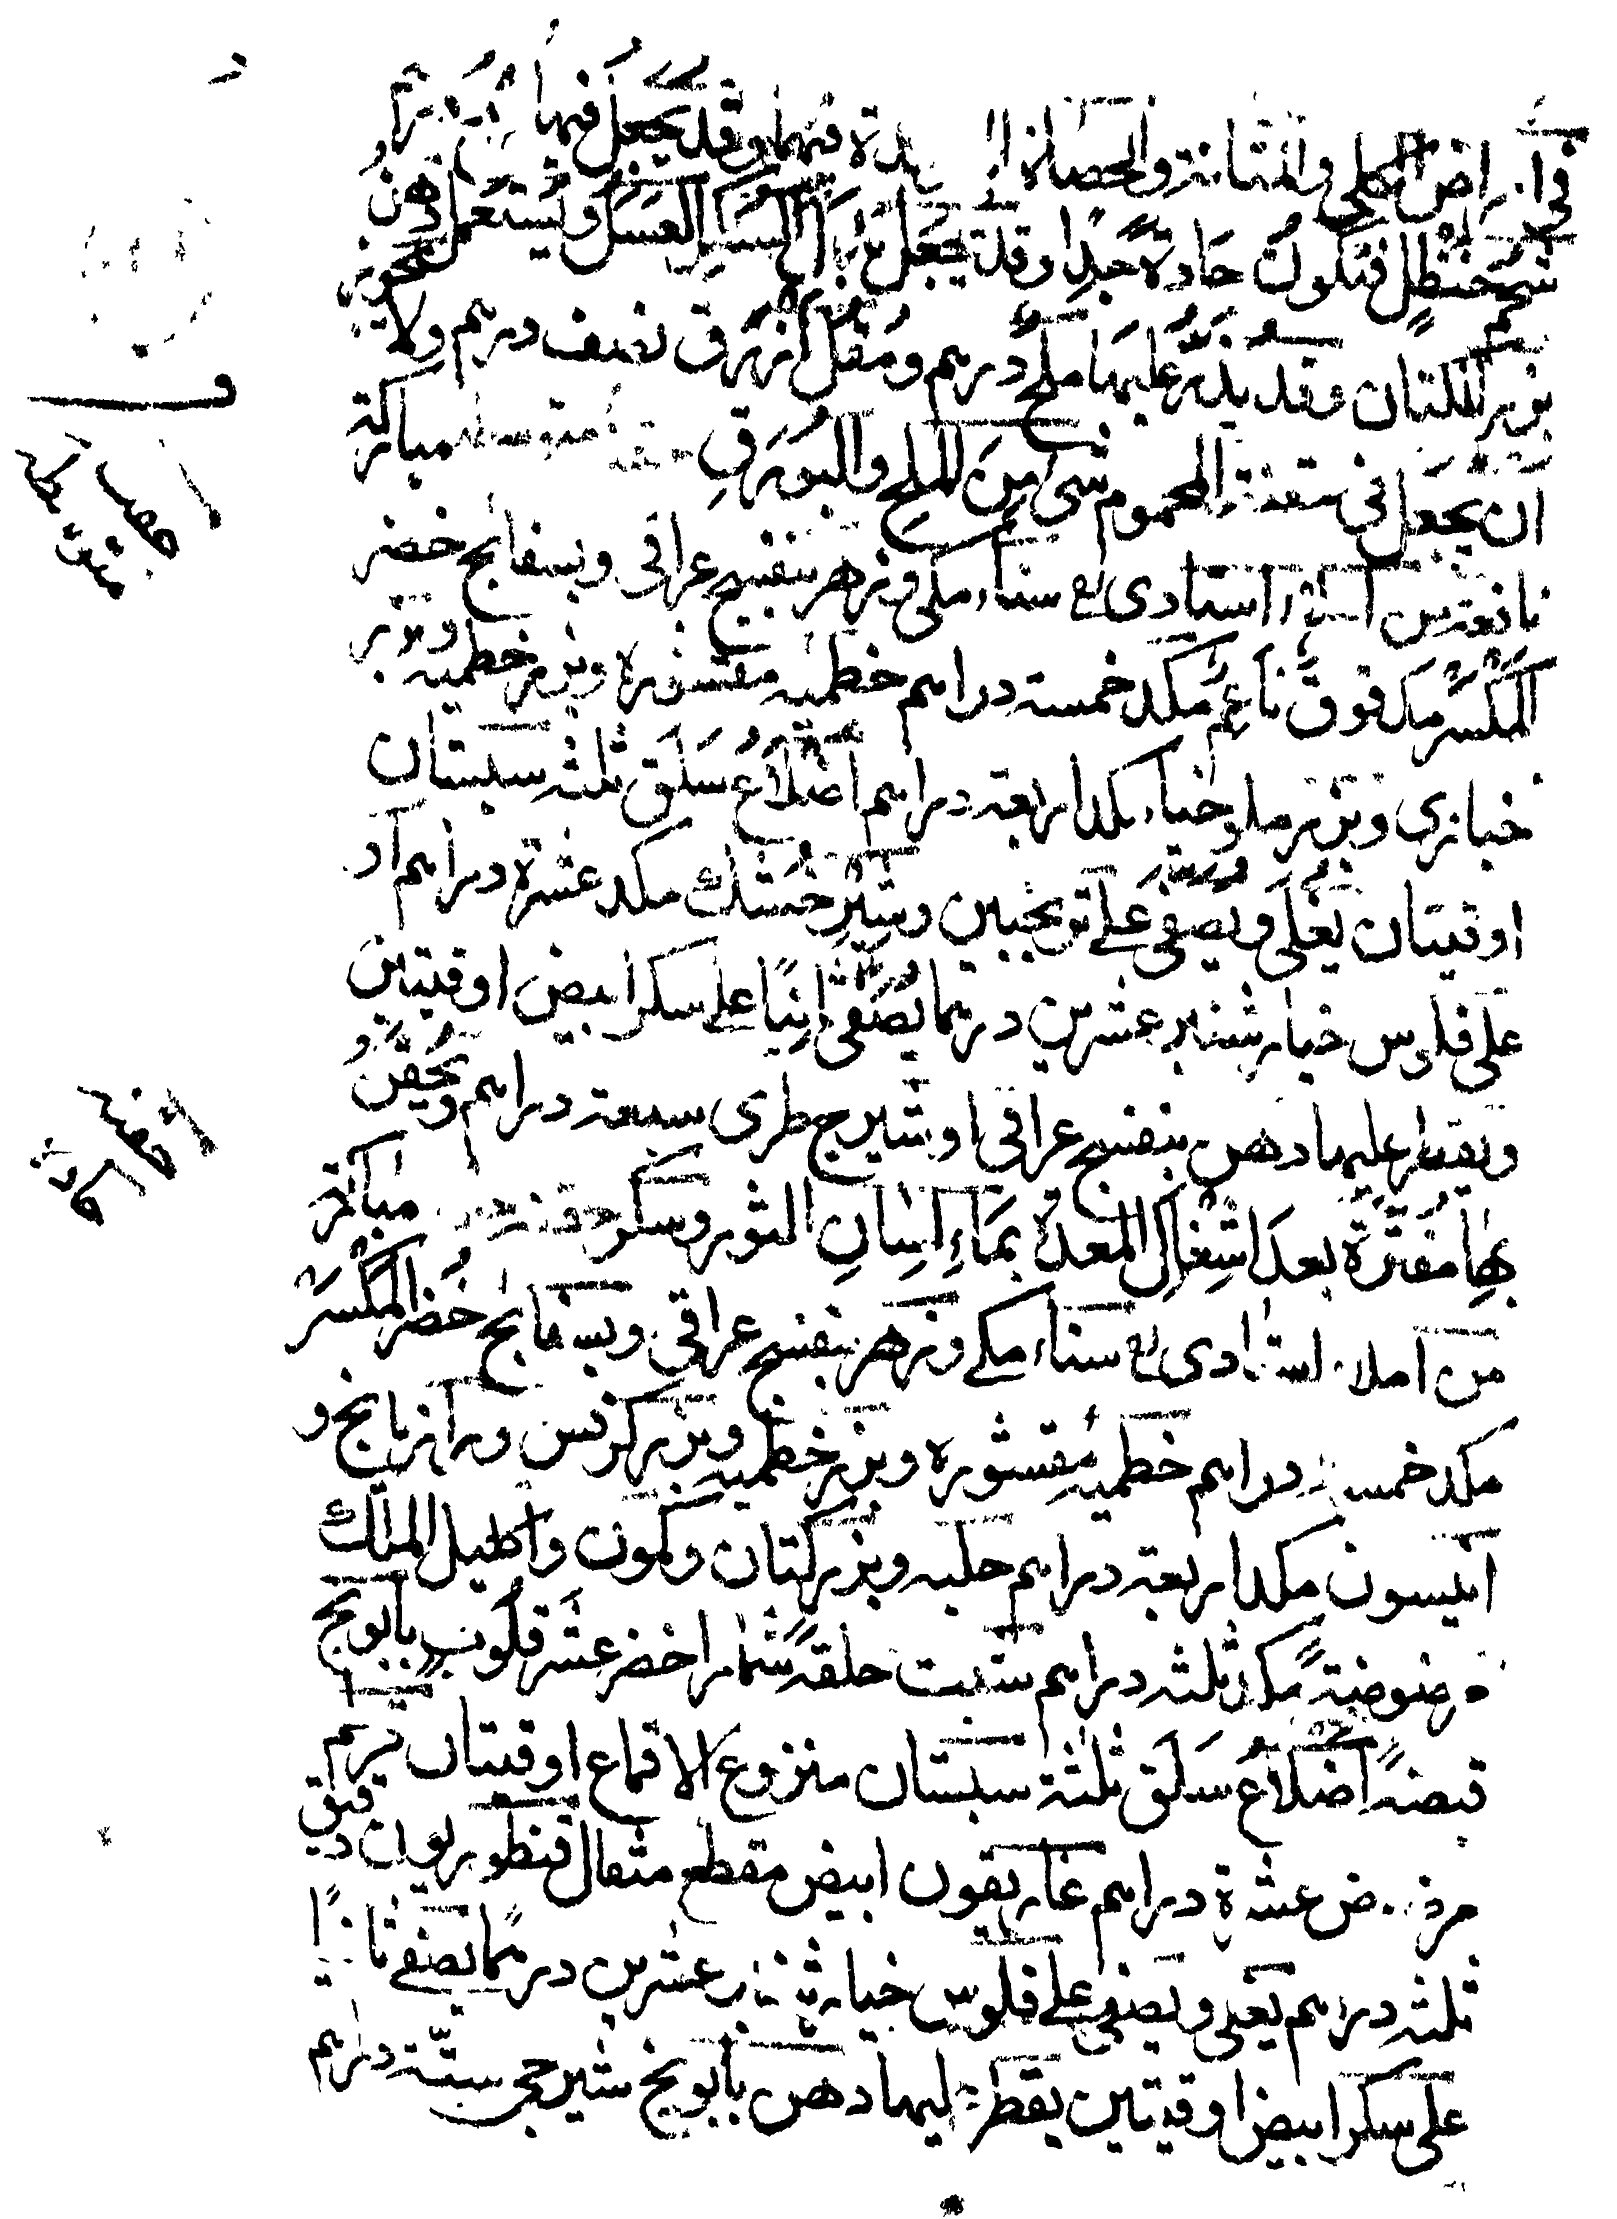 في امراض الكلى والمثانة والحصاة فيهما وقد يجعل فيها
شحم حنظل فتكون حادة جدا وقد يجعل بدل السكر العسل ويستعمل دهن
بزر الكتان وقد يذر عليها ملح درهم ومقل ازرق نصف درهم ولا يجوز
ان يجعل في حقنة المحموم شيء من الملح والبورق متوسطة مباركة
نافعة من استادي سناء مكي وزهر بنفسج عراقي وبسفايج خضر
المكسر مدقوق ناعم مكد خمسة دراهم خطمية مقشورة وبزر خطمية وبزر
خبازي وبزر ملوخياء مكد اربعة دراهم اضلاع سلق ثلثه سبستان
اوقيتان يغلى ويصفى على ترنجبين وشيرخشك مكد عشرة دراهم او
على فلوس خيار شنبر عشرين درهما يصفى ثانيا على سكر ابيض اوقيتين
ويقطر عليها دهن بنفسج عراقي او شيرج طري سبعة دراهم ويحقن
بها مفترة بعد اشغال المعدة بماء لسان الثور وسكر حقنة مباركة
من املاء استادي سناء مكي وزهر بنفسج عراقي وبسفايج خضر المكسر
مكد خمسة دراهم خطمية مقشورة وبزر خطمية وبزر كرفس ورازيانج و
انيسون مكد اربعة دراهم حلبه وبزر كتان وكمون واكليل الملك
مرضوضة مكد ثلثه دراهم شبت حلقة شمار اخضر عشر قلوب بابونج
قبضة اضلاع سلق ثلثة سبستان منزوع الاقماع اوقيتان قرطم
مرضوض عشرة دراهم غاريقون ابيض مقطع مثقال قنطوريون دقيق
ثلثه دراهم يغلى ويصفى على فلوس خيار شنبر عشرين درهما يصفى ثانيا
على سكر ابيض اوقيتين يقطر عليها دهن بابونج شيرج ستة دراهم